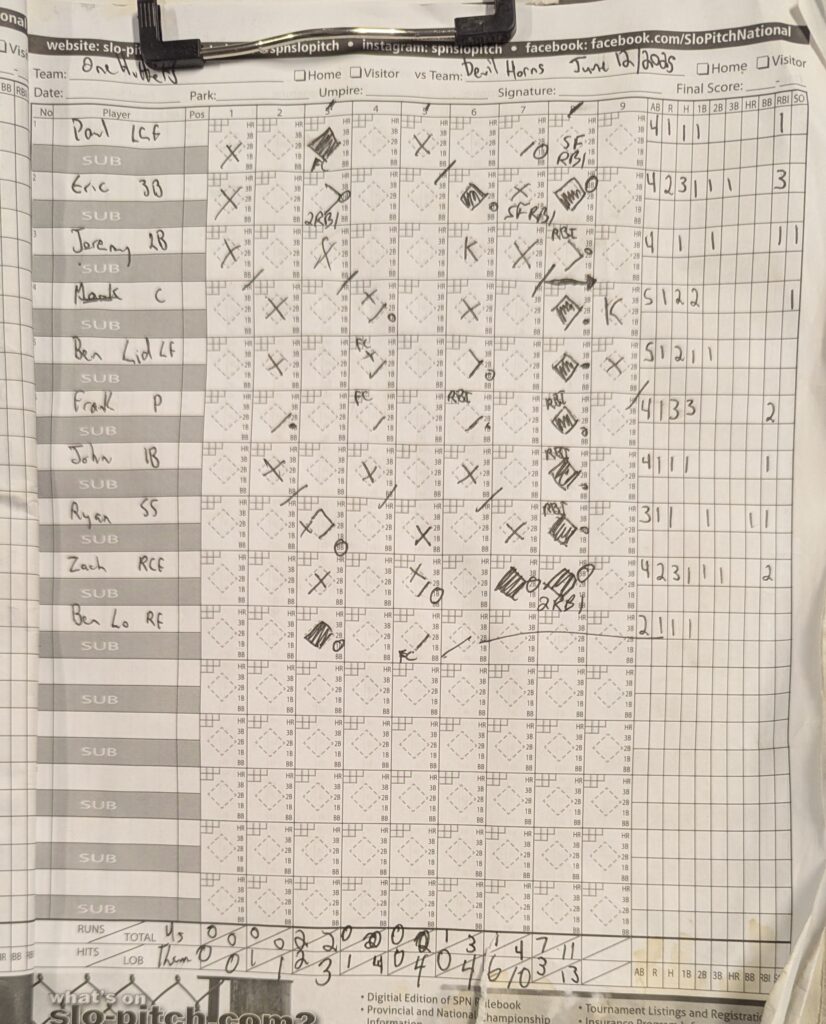 website: slo-pi @spnslopitch • instagram: spnslopitch • facebook: facebook.com/SloPitchNational
Team: One Hitters Home Visitor vs Team: Devil Horns June 12/2025 Home Visitor
Date: Park: Umpire: Signature: Final Score:
No Player Pos 1 2 3 4 6 7 8 9 AB R H 1B 2B 3B HR BB RBI SO
Paul LCF X FC X SF RBI 4 1 1 1 1
SUB
Eric 3B X 2RBI X SF RBI 4 2 3 1 1 1 3
SUB
Jeremy 2B X X K X RBI 4 1 1 1 1
SUB
C X X X K 5 1 2 2 1
SUB
Ben Lid LF X FC X X 5 1 2 1 1
SUB
Frank P FC RBI RBI 4 1 3 3 2
SUB
John 1B X X X RBI 4 1 1 1 1
SUB
Ryan SS X X X RBI 3 1 1 1 1 1
SUB
Zach RCF X X 2RBI 4 2 3 1 1 1 2
SUB
Ben Lo RF FC 2 1 1 1
SUB
SUB
SUB
SUB
SUB
SUB
RUNS TOTAL Us 0 0 0 0 2 2 0 2 0 2 1 3 1 4 7 11
HITS LOB Them 0 0 1 1 2 3 1 4 0 4 0 4 6 10 3 13
AB R H 1B 2B 3B HR BB RBI SO
what's on
slo-pitch.com?
• Digitial Edition of SPN R lebook
• Provincial and National Championship
Information
• Tournament Listings and Registrati